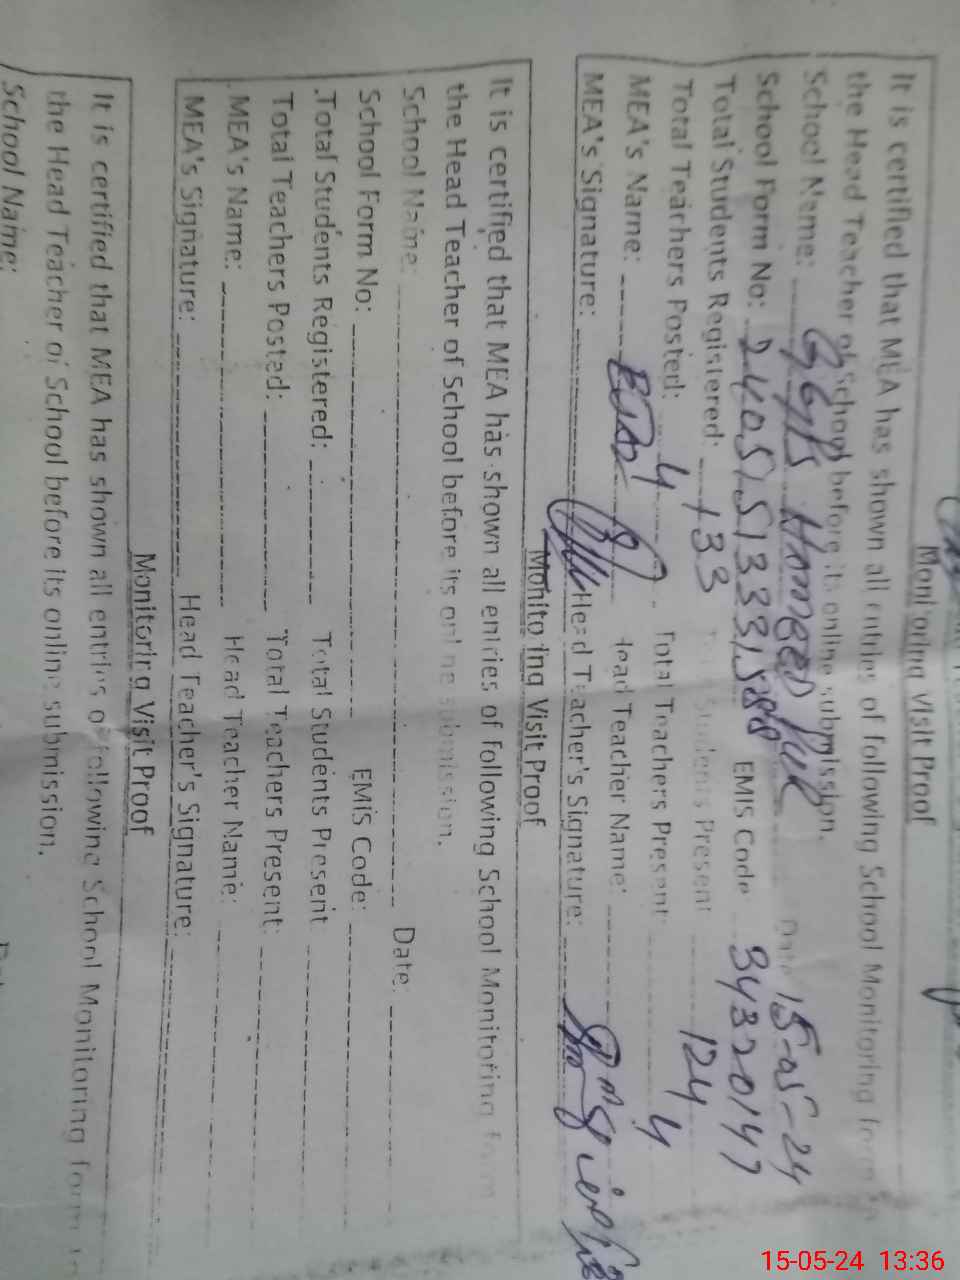 Monitoring Visit Proof
It is certified that MEA has shown all entries of following School Monitoring
the Head Teacher of School before its online submission.
School Name: Date: 15-05-24
School Form No: EMIS Code 34320147
Total Students Registered: 133 Students Present 124
Total Teachers Posted: 4 Total Teachers Present: 4
MEA's Name: Head Teacher Name:
MEA's Signature: Head Teacher's Signature:
Monitoring Visit Proof
It is certified that MEA has shown all entries of following School Monitoring form
the Head Teacher of School before its online submission.
School Name: Date:
School Form No: EMIS Code:
Total Students Registered: Total Students Present
Total Teachers Posted: Total Teachers Present:
MEA's Name: Head Teacher Name:
MEA's Signature: Head Teacher's Signature:
Monitoring Visit Proof
It is certified that MEA has shown all entries of following School Monitoring form
the Head Teacher of School before its online submission.
School Name:
15-05-24 13:36